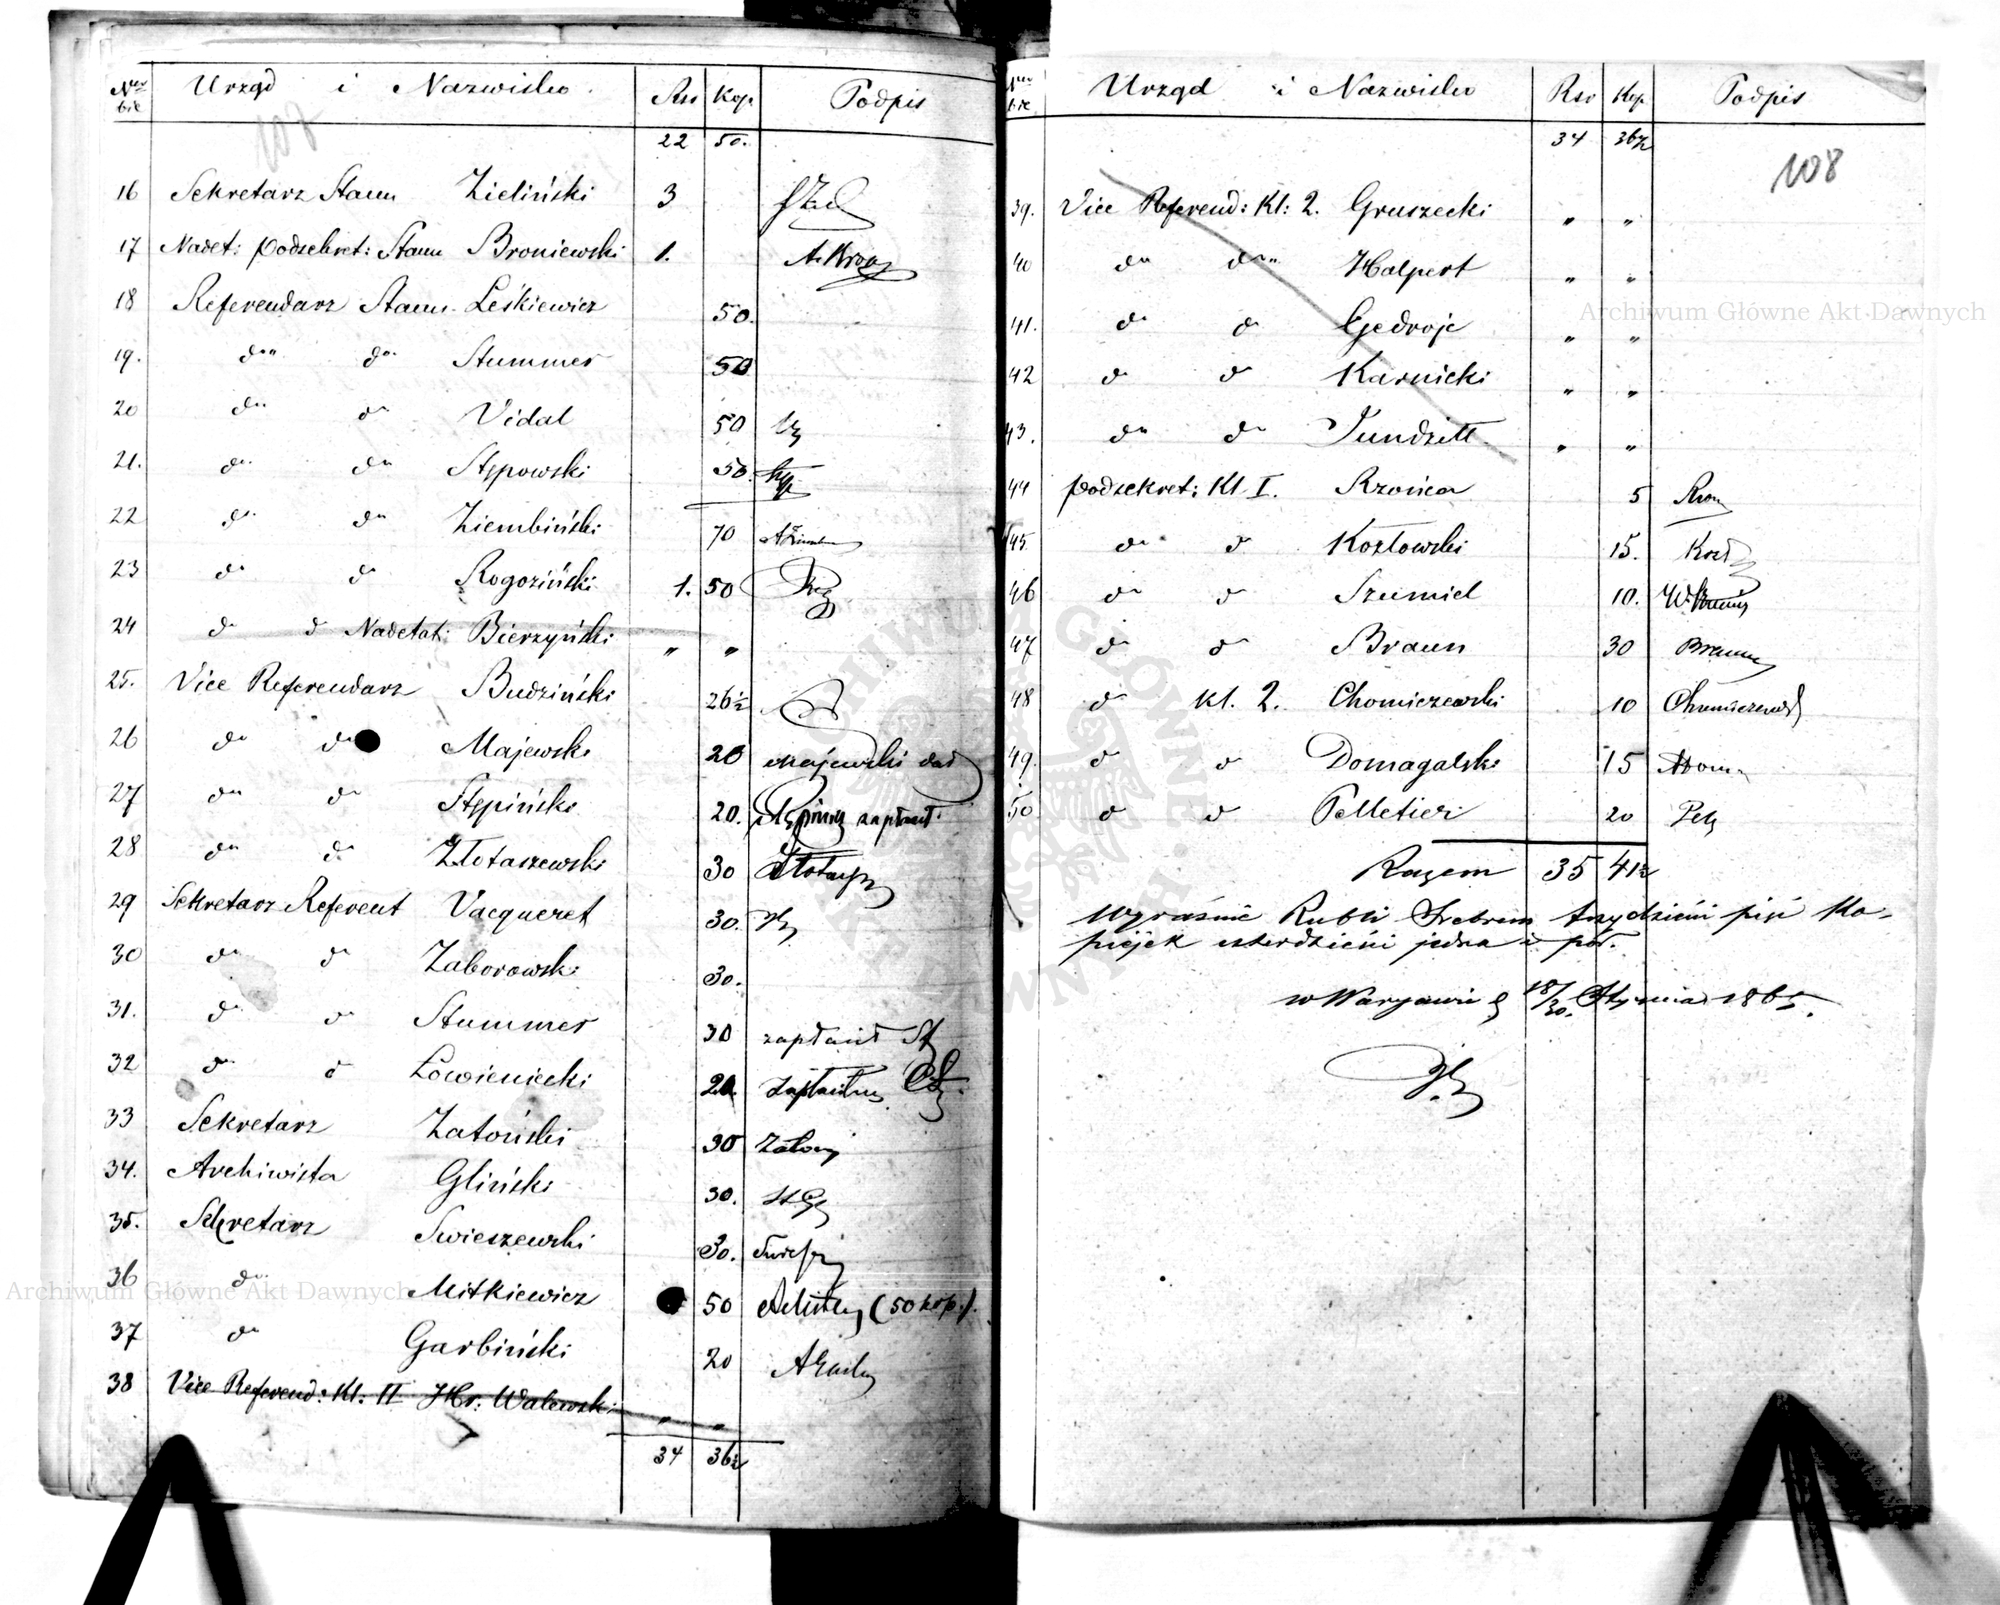 Ner bie Urząd i Nazwisko Rsr Kop. Podpis
107
22 50.
16 Sekretarz Stanu Zieliński 3
17 Nadet: podsekret: Stanu Broniewski 1.
18 Referendarz Stanu Leśkiewicz 50.
19. do do Stummer 50
20 do do Vidal 50
21. do do Stępowski 50.
22 do do Ziembiński 70
23 do do Rogoziński 1. 50
24 do do Nadetat: Bierzyński " "
25. Vice Referendarz Budziński 26½
26 do do Majewski 20 Majewski dał
27 do do Stępiński 20. zapłacił
28 do do Złotaszewski 30
29 Sekretarz Referent Vacqueret 30.
30 do do Zaborowski 30.
31. do do Stummer 30 zapłacił St
32 do do Łowieniecki 20 zapłaciłem
33 Sekretarz Zatoński 30
34. Archiwista Gliński 30.
35. Sekretarz Swieszewski 30.
36 do Mitkiewicz 50 (50 kop.).
37 do Garbiński 20
38 Vice Referend: Kl: II Hr: Walewski " "
34 36½
Ner bie Urząd i Nazwisko Rsr Kop. Podpis
34 36½
108
39. Vice Referend: Kl: 2. Gruszecki " "
40 do do Halpert " "
41. do do Giedrojc " "
42 do do Karnicki " "
43. do do Jundziłł " "
44 podsekret: Kl I. Rzońca 5
45. do do Kozłowski 15.
46 do do Szumiel 10.
47 do do Braun 30 Braun
48 do Kl. 2. Chomiczewski 10 Chomiczewski
49. do do Domagalski 15
50 do do Pelletier 20
Razem 35 41½
Wyraźnie Rubli Srebrem trzydzieści pięć Ko-
piejek czterdzieści jedna i pół.
w Warszawie d 18/30. Stycznia 1865.
Archiwum Główne Akt Dawnych
Archiwum Główne Akt Dawnych